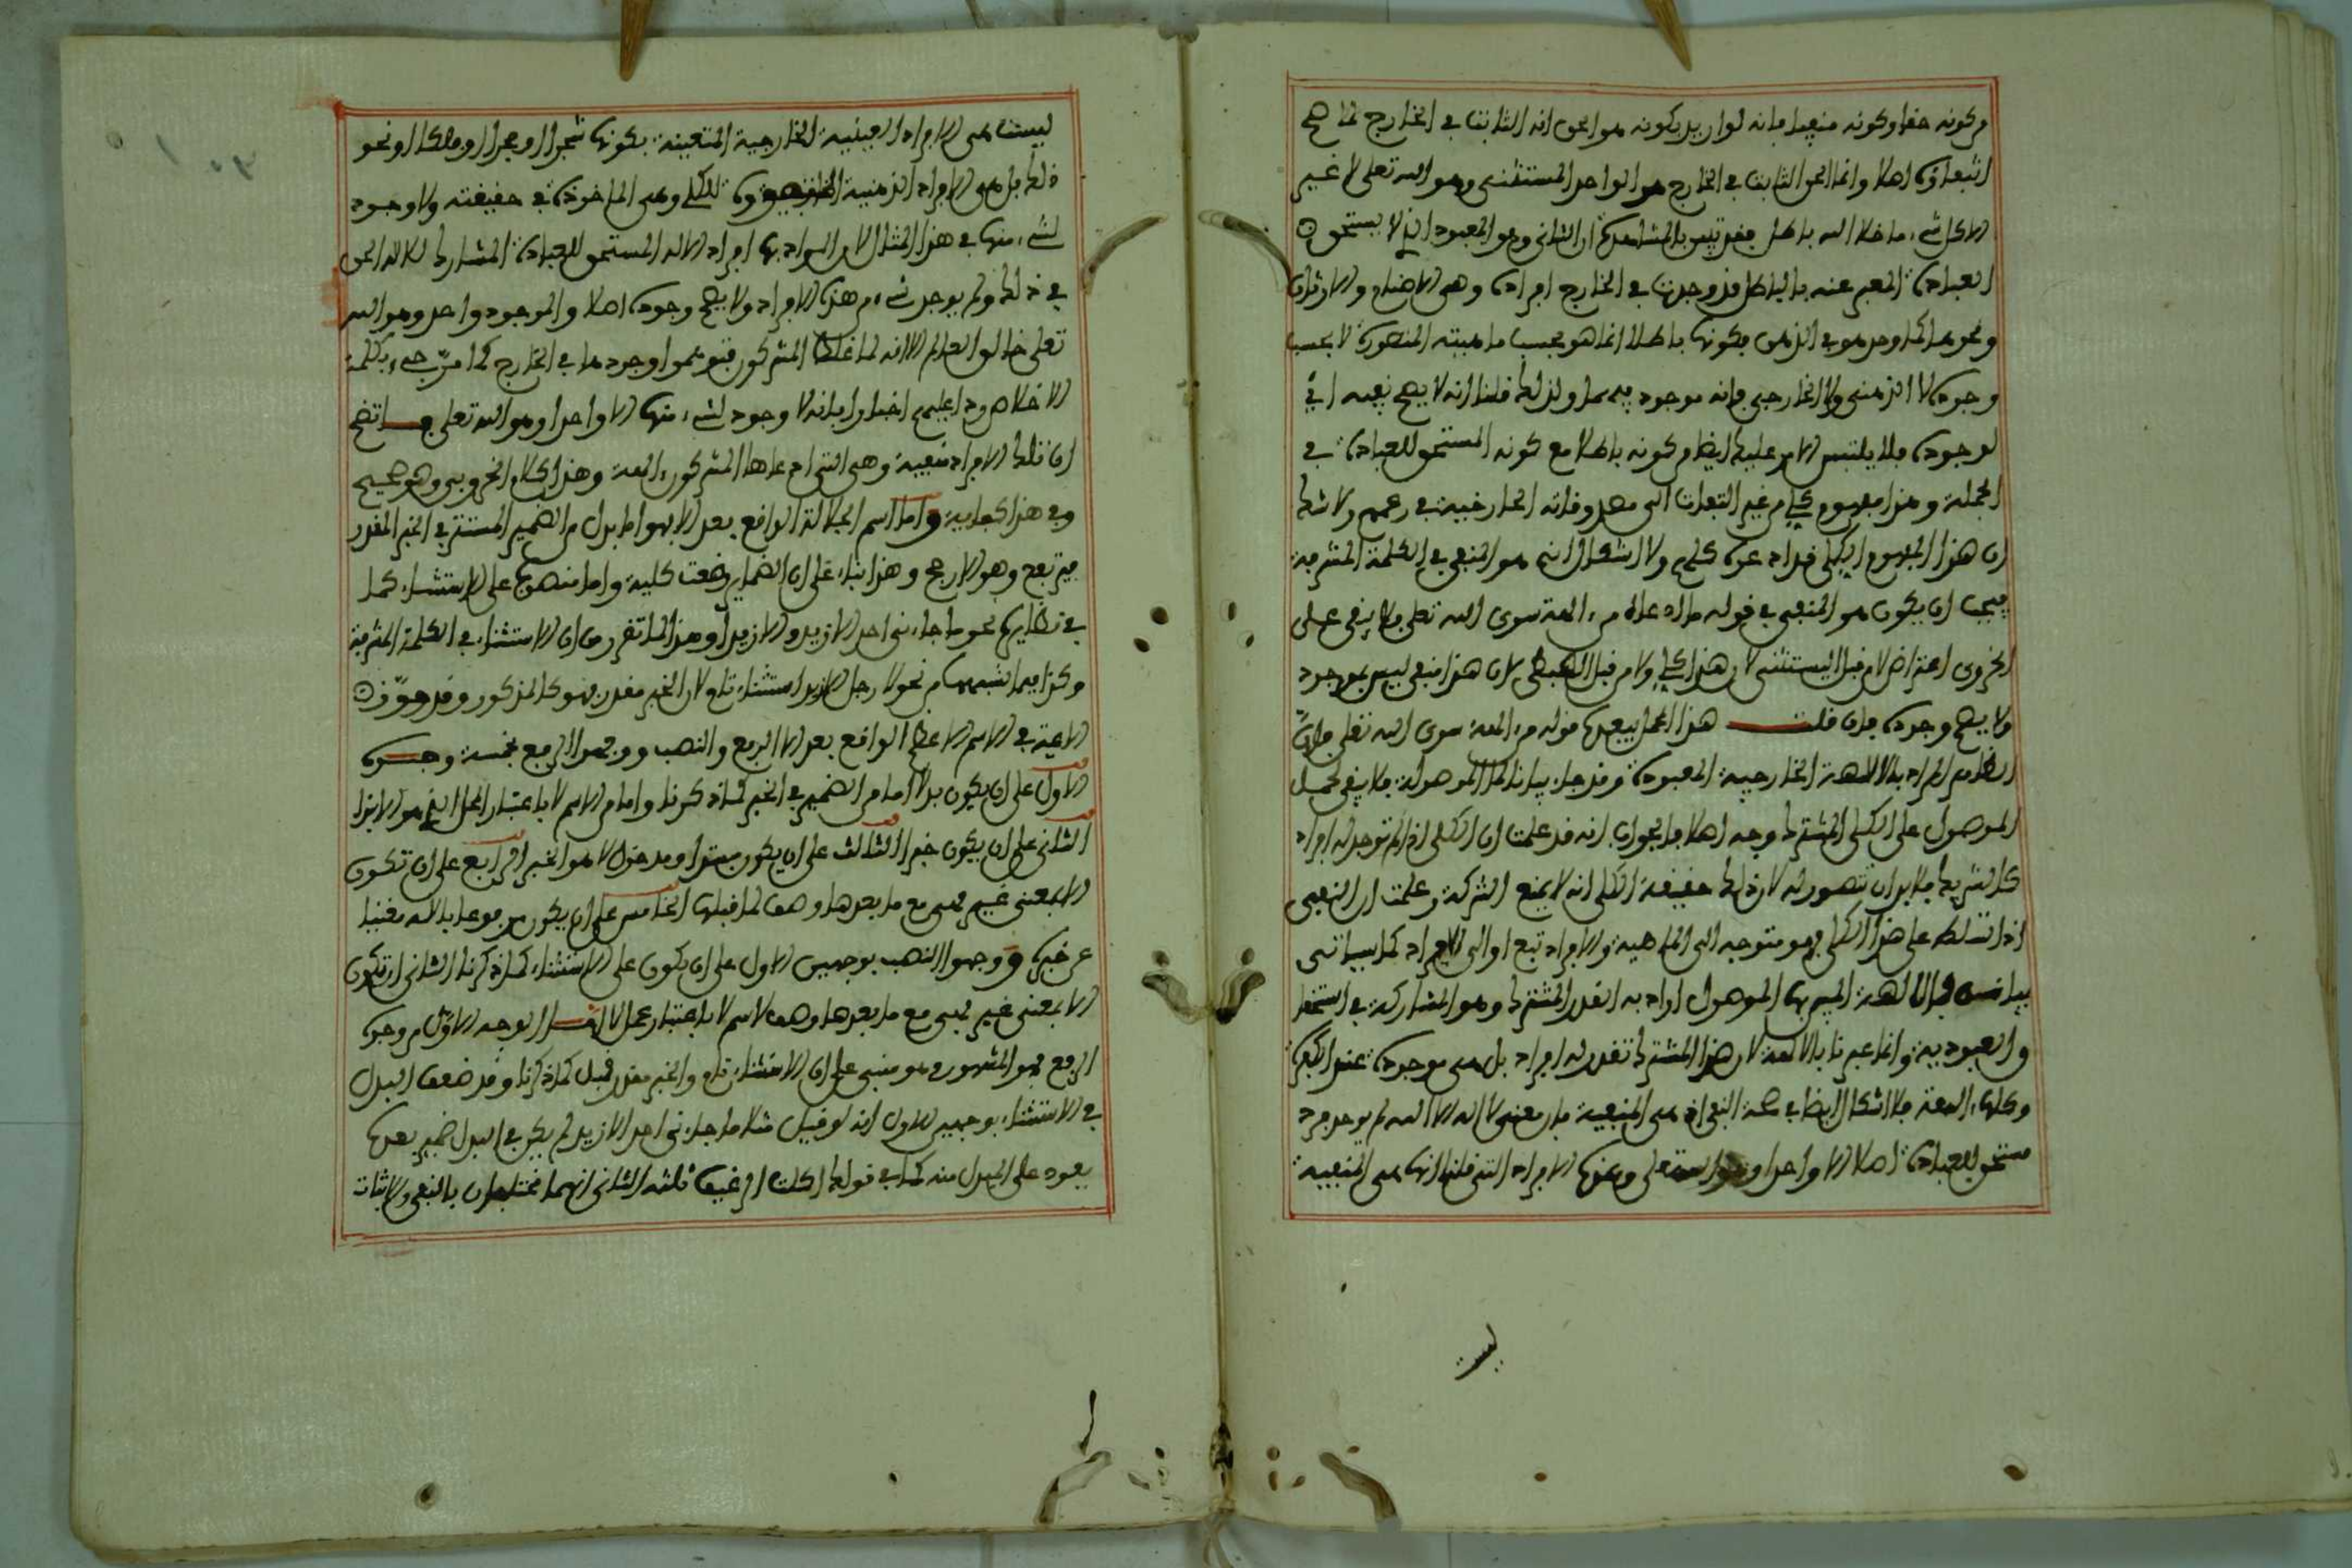 من كونه حقا وكونه منفيا فانه لو اريد بكونه هو الحق انه الثابت في الخارج لما صح
انتفاؤه اصلا وانما الحق الثابت في الخارج هو الواحد المستثنى وهو الله تعلى لا غير
الا كل شيء ما خلا الله باطل فقد تبين بالمشاهدة ان الثاني وهو المعبود الذي لا يستحق
العبادة المعبر عنه بالباطل قد وجدت في الخارج افراده وهي الاصنام والاوثان
ونحوهما كما وجد هو في الذهن فكونها باطلا انما هو بحسب ماهيته المتصورة لا بحسب
وجوده لا الذهني ولا الخارجي فانه موجود فيهما ولذلك قلنا انه لا يصح نفيه اي
لوجوده فلا يلتبس الامر عليك ايضا من كونه باطلا مع كونه المستحق للعبادة في
الجملة وهذا مفهوم كلي من غير التفات الى مصدوقاته الخارجية في زعمهم ولا شك
ان هذا المفهوم الكلي
فيجب ان يكون هو المنفي في قوله ما اله سوى الله تعلى فلا يبقى على
الخروبي اعتراض لا من قبل المستثنى لان هذا كلي ولا من قبل لان هذا منفي ليس بموجود
ولا يصح وجوده فان قلت هذا المحل يبعده قوله من الهة سوى الله تعلى فان
الظاهر المراد بالالهة الخارجية المعبودة وقد جاء بيانا لما الموصولة فلا يبقى لحمل
الموصول على الكلي المشترك وجه اصلا فالجواب انه قد علمت ان الكلي اذا لم توجد له افراد
كالشريك فلا بد ان تتصور له لان ذلك حقيقة الكلي انه لا يمنع الشركة وعلمت ان النفي
اذا تسلط على هذا الكلي فهو متوجه الى الماهية والافراد تبع او الى الافراد كما سياتي
بيانه فالالهة المبين بها الموصول اراد به القدر المشترك وهو المشاركة في استحقاق
والعبودية وانما عبر بالالهة لان هذا المشترك تقدر له افراد بل هي موجودة عند الكفرة
وكلها الهة فلا اشكال ايضا في صحة النفي اذ هي المنفية فان معنى لا اله الا الله لم يوجد فرد
مستحق للعبادة اصلا الا واحدا وهو الله تعلى وهذه الافراد التي قلنا انها هي المنفية
ليست
ليست هي الافراد العينية الخارجية المتعينة بكونها شجرا او حجرا او ملكا او نحو
ذلك بل هي الافراد الذهنية للكلي وهي الماخوذة في حقيقته ولا وجود
لشيء منها في هذا المثال لان المراد بها افراد الاله المستحق للعبادة المشارك للاله الحق
في ذلك ولم يوجد شيء من هذه الافراد ولا يصح وجوده اصلا والموجود واحد وهو الله
تعلى خالق العالم الا انه لما غلط المشركون فتوهموا وجودها في الخارج كما مر جيء بكلمة
الاخلاص ردا عليهم اخبارا بانه لا وجود لشيء منها الا واحدا وهو الله تعلى فاتضح
ان تلك الافراد منفية وهي التي ادعاها المشركون الهة وهذا كلام الخروبي وهو صحيح
وفي هذا كفاية واما اسم الجلالة الواقع بعد الا فهو اما بدل من الضمير المستتر في الخبر المقدر
فيرتفع وهو الارجح وهذا بناء على ان الضماير وضعت كلية واما منصوب على الاستثناء كما
في نظايره نحو ما جاءني احد الا زيد والا زيدا وهذا لما تقرر من ان الاستثناء في الكلمة المشرفة
وكذا فيما اشبهها من نحو لا رجل الا زيد استثناء تام لان الخبر مقدر فهو كالمذكور وقد جوز
الايمة في الاسم الاعظم الواقع بعد الا الرفع والنصب ووجهوا الرفع بخمسة وجوه
الاول على ان يكون بدلا اما من الضمير في الخبر كما ذكرنا واما من الاسم لا باعتبار المحل الذي هو الابتدا
الثاني على ان يكون خبرا الثالث على ان يكون مبتدا ومدخول لا هو الخبر الرابع على ان تكون
الا بمعنى غير فهي مع ما بعدها وصف لما قبلها الخامس على ان يكون مرفوعا بالاله مغنيا
عن خبره ووجهوا النصب بوجهين الاول على ان يكون على الاستثناء كما ذكرنا الثاني ان تكون
الا بمعنى غير فهي مع ما بعدها وصف لاسم لا باعتبار عمل لا اما الوجه الاول من وجوه
الرفع فهو المشهور وهو مبني على ان الاستثناء تام والخبر مقدر قبل كما ذكرنا وقد ضعف البدل
في الاستثناء بوجهين الاول انه لو قيل مثلا ما جاءني احد الا زيد لم يكن في البدل ضمير
يعود على المبدل منه كما في قولك اكلت الرغيف ثلثه الثاني انهما مختلفان بالنفي والاثبات